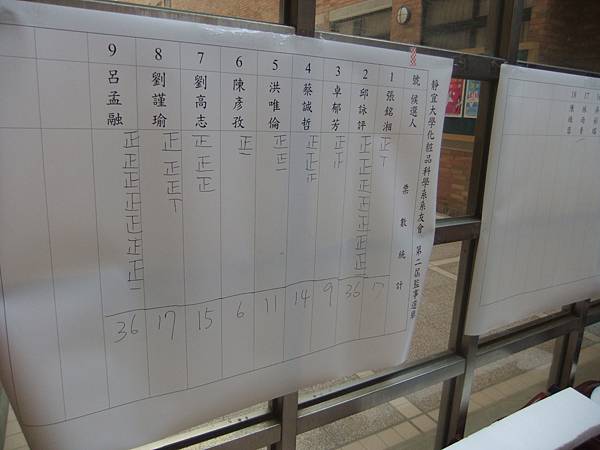 靜宜大學化粧品科學系系友會 第二屆監事選舉
號 候選人 票數統計
1 張銘湘 正丅 7
2 邱詠評 正正正正正正正一 36
3 卓郁芳 正 9
4 蔡誠哲 正正 14
5 洪唯倫 正正一 11
6 陳彥孜 正一 6
7 劉高志 正正正 15
8 劉謹瑜 正正正丅 17
9 呂孟融 正正正正正正正一 36
17
18